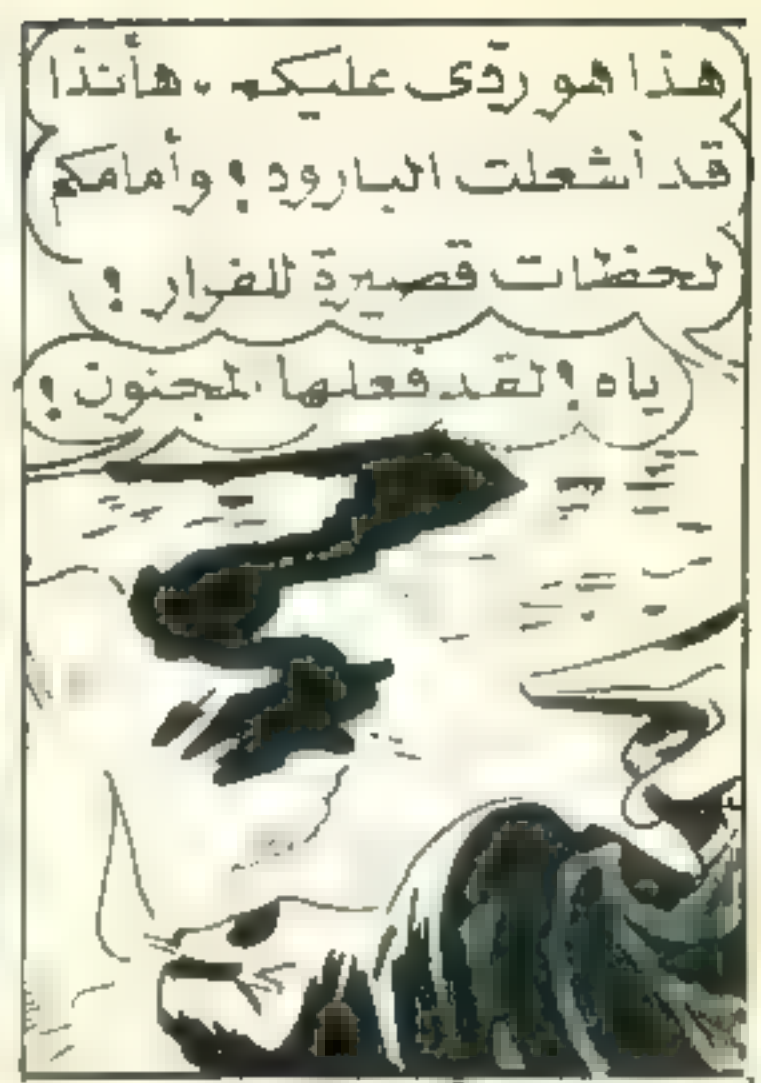 هذا هو ردّى عليكم . هأنذا
قد أشعلت البارود ! وأمامكم
لحضات قصيرة للفرار !
ياه ! لقد فعلها المجنون !